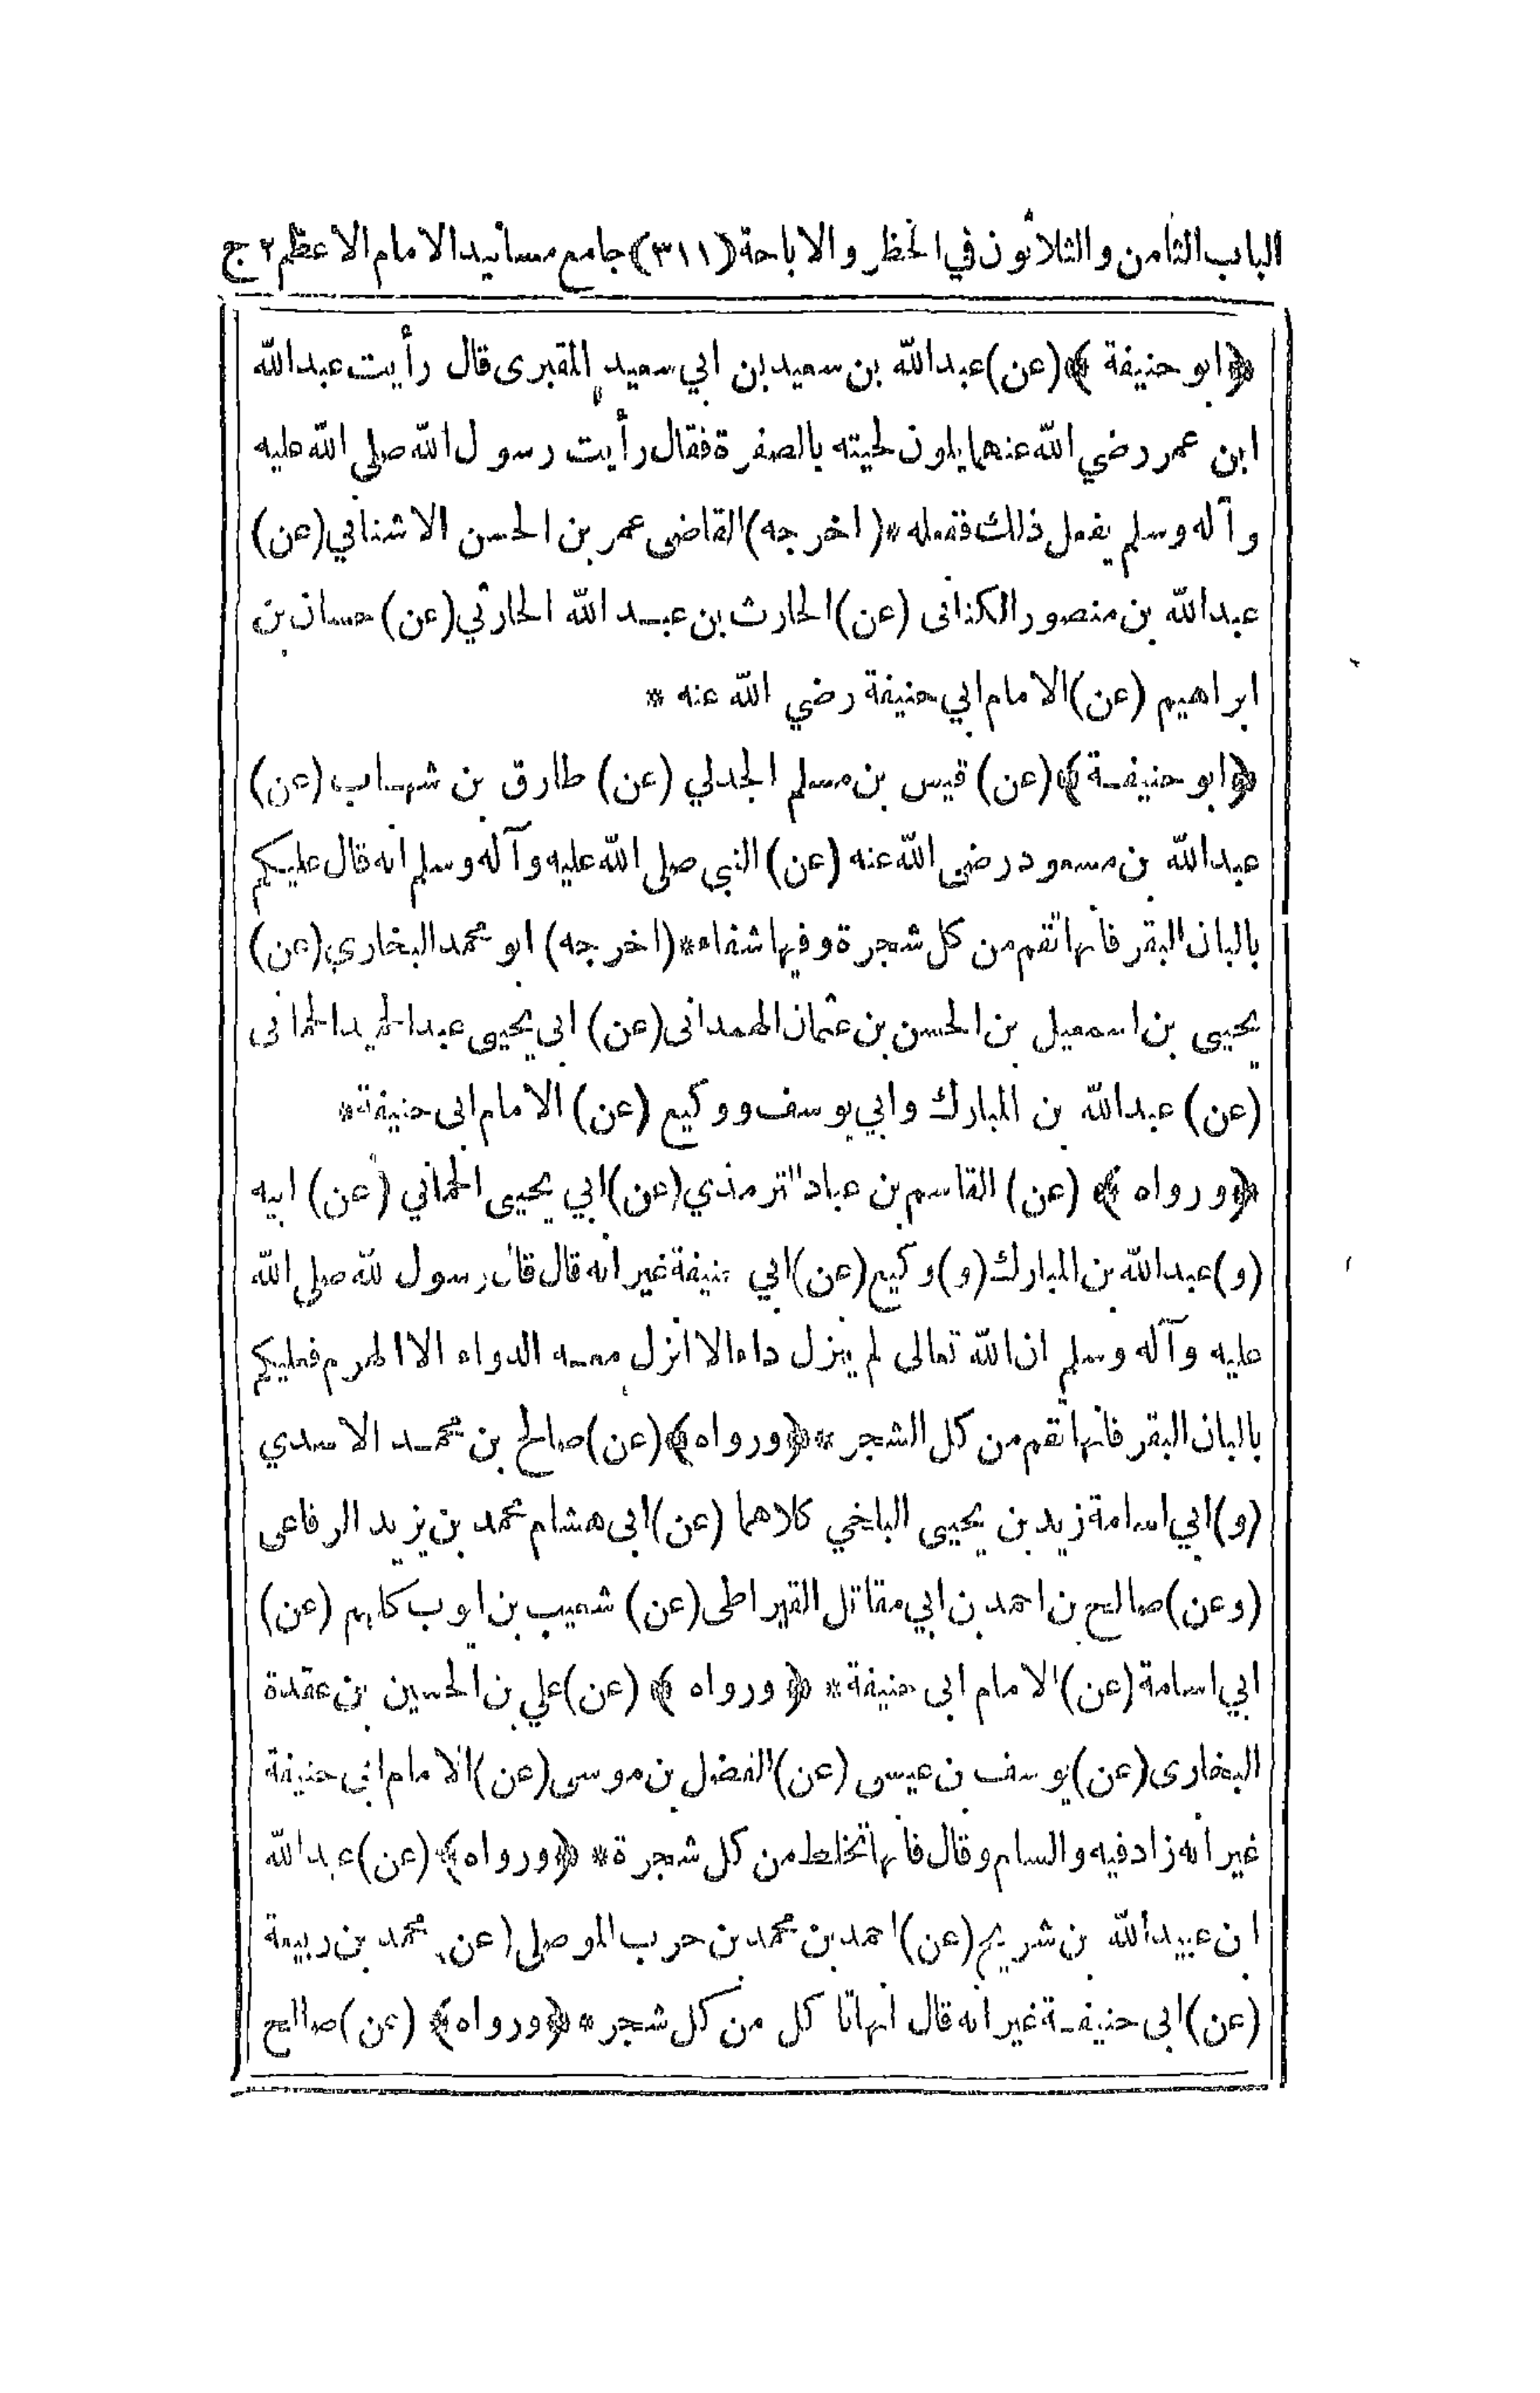 الباب الثامن والثلاثون في الحظر والاباحة (٣١١) جامع مسانيد الامام الاعظم ٢ ج
﴿ابو حنيفة﴾ (عن) عبدالله بن سعيد بن ابي سعيد المقبرى قال رأيت عبدالله
ابن عمر رضي الله عنهما يلون لحيته بالصفرة فقال رأيت رسول الله صلى الله عليه
وآله وسلم يفعل ذلك ففعله * (اخرجه) القاضى عمر بن الحسن الاشناني (عن)
عبدالله بن منصور الكنانى (عن) الحارث بن عبد الله الحارثي (عن) حسان بن
ابراهيم (عن) الامام ابي حنيفة رضي الله عنه *
﴿ابو حنيفة﴾ (عن) قيس بن مسلم الجدلي (عن) طارق بن شهاب (عن)
عبدالله بن مسعود رضى الله عنه (عن) النبي صلى الله عليه وآله وسلم انه قال عليكم
بالبان البقر فانها تقم من كل شجرة وفيها شفاء * (اخرجه) ابو محمد البخاري (عن)
يحيى بن اسمعيل بن الحسن بن عثمان الهمدانى (عن) ابى يحيى عبدالحميد الحمانى
(عن) عبدالله بن المبارك وابي يوسف ووكيع (عن) الامام ابى حنيفة *
﴿ورواه﴾ (عن) القاسم بن عباد الترمذي (عن) ابي يحيى الحماني (عن) ابيه
(و) عبدالله بن المبارك (و) وكيع (عن) ابي حنيفة غير انه قال قال رسول الله صلى الله
عليه وآله وسلم ان الله تعالى لم ينزل داء الا انزل معه الدواء الا الهرم فعليكم
بالبان البقر فانها تقم من كل الشجر * ﴿ورواه﴾ (عن) صالح بن محمد الاسدي
(و) ابي اسامة زيد بن يحيى البلخي كلاهما (عن) ابى هشام محمد بن يزيد الرفاعى
(وعن) صالح بن احمد بن ابي مقاتل القيراطى (عن) شعيب بن ايوب كلهم (عن)
ابي اسامة (عن) الامام ابى حنيفة * ﴿ورواه﴾ (عن) علي بن الحسين بن عقدة
البخارى (عن) يوسف بن عيسى (عن) الفضل بن موسى (عن) الامام ابي حنيفة
غير انه زاد فيه والسام وقال فانها تخلط من كل شجرة * ﴿ورواه﴾ (عن) عبدالله
ابن عبيدالله بن شريح (عن) احمد بن محمد بن حرب الموصلى (عن) محمد بن ربيعة
(عن) ابى حنيفة غير انه قال انها تاكل من كل شجر * ﴿ورواه﴾ (عن) صالح